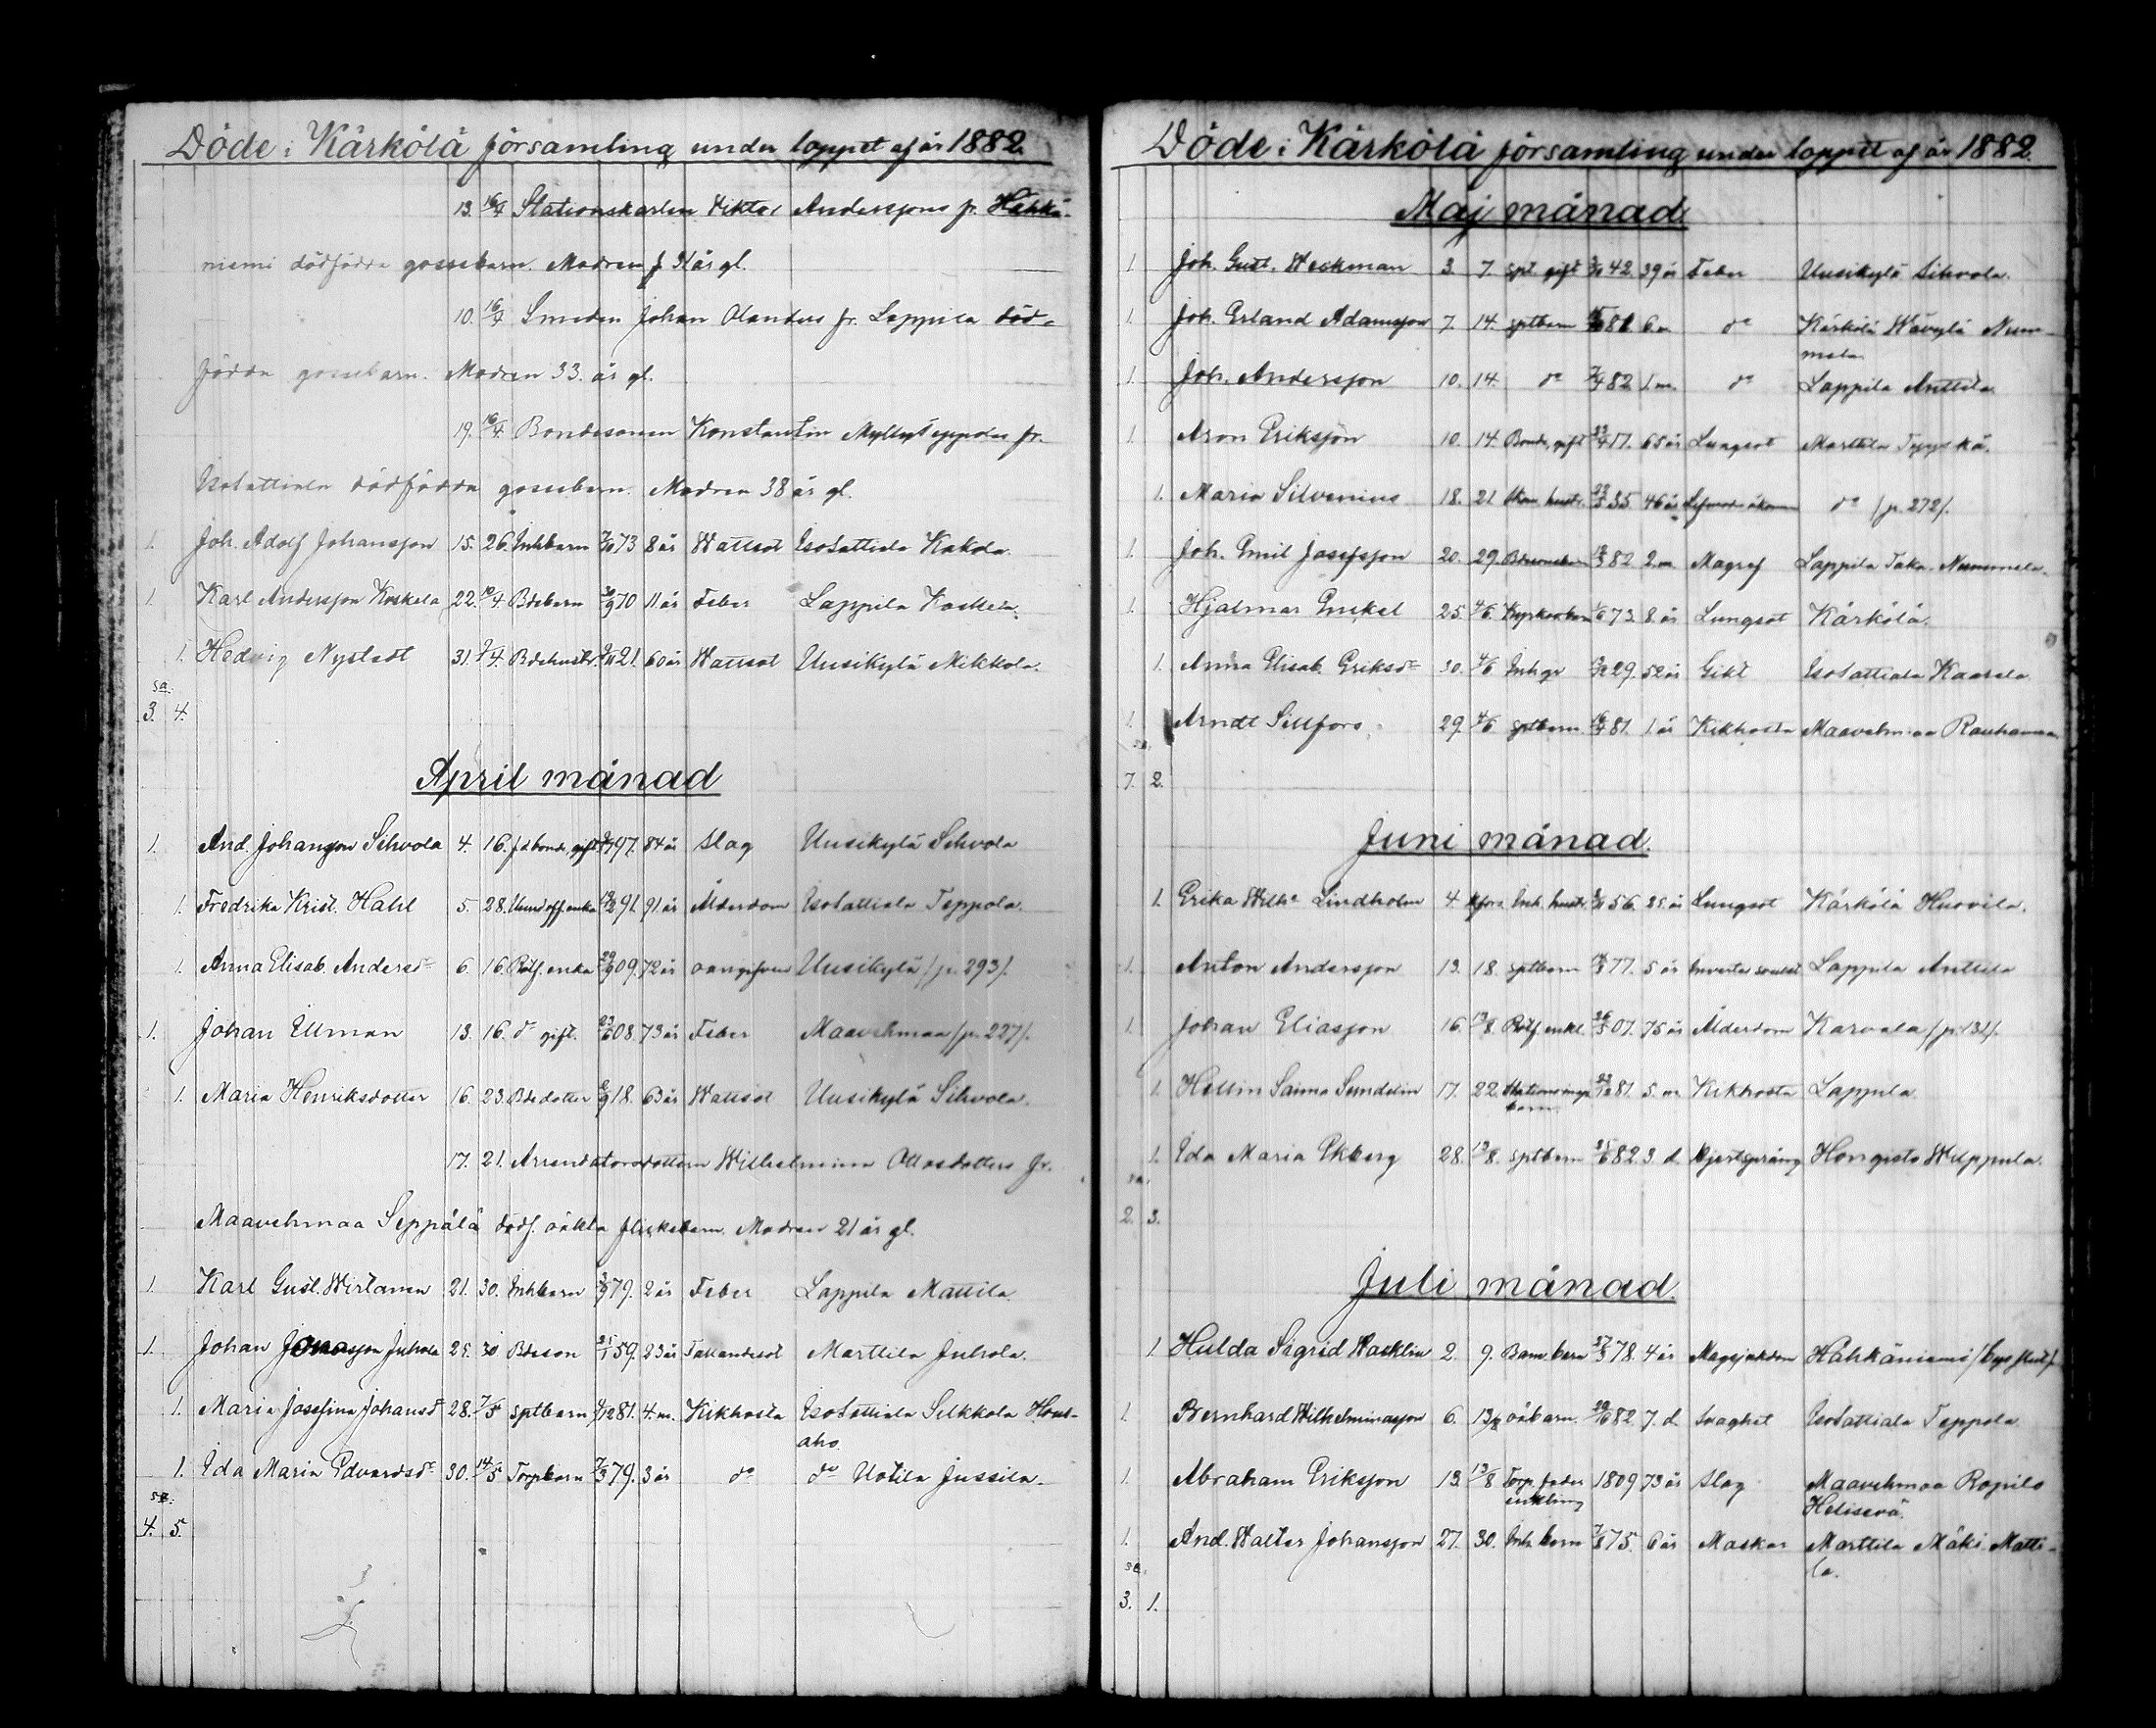 Döde i Kärkölä församling under loppet af år 1882.
13. 16/4 Stationskarlen Viktor Anderssons fr. Hähkä-
niemi dödfödda gossebarn. Modren f 31 år gl.
10. 16/4 Smeden Johan Olanders fr. Lappila död-
födda gossebarn. Modren 33. år gl.
19. 16/4 Bondesonen Konstantin Myllyseppolas fr.
Isosattiala dödfödda gossebarn. Modren 38 år gl.
1. Joh. Adolf Johansson 15. 26. Inhbarn 73 8 år Wattsot Isosattiala Kakola.
1. Karl Andersson Koskela 22. 10/4 Bdebarn 70 11 år Feber Lappila Koskela.
1. Hedvig Nystedt 31. 9/4 Bdehustr. 21. 60 år Wattsot Uusikylä Mikkola.
sa:
3. 4.
April månad
1. And. Johansson Sihvola 4. 16. fd bonde, gift 97. 84 år Slag Uusikylä Sihvola
1. Fredrika Krist. Hahl 5. 28. Und off enka 19/2 91. 91 år Ålderdom Isosattiala Teppola.
1. Anna Elisab. Andersdr 6. 16. Rotf. enka 29/9 09. 72 år oangifven Uusikylä /p. 293/.
1. Johan Ulman 13. 16. do gift. 23/6 08. 73 år Feber Maavehmaa /p. 227/.
1. Maria Henriksdotter 16. 23. Bdedotter 18. 63 år Wattsot Uusikylä Sihvola.
17. 21. Arrendatorsdottern Wilhelmina Ottosdotters fr.
Maavehmaa Seppälä dödf. oäkta flickebarn. Modren 21 år gl.
1. Karl Gust. Wirtanen 21. 30. Inhbarn 79. 2 år Feber Lappila Mattila.
1. Johan Jonasson Juhola 25. 30 Bdeson 59. 23 år Fallandesot Marttila Juhola.
1. Maria Josefina Johansdr 28. 7/5 sptbarn 81. 4. m. Kikhosta Isosattiala Silkkola Hons-
aho.
1. Ida Maria Edvardsdr 30. 14/5 Torpbarn 7/3 79. 3 år do do Uotila Jussila.
sa:
4. 5.
Döde i Kärkölä församling under loppet af år 1882.
Maj månad.
1. Joh. Gust. Weckman 3. 7. spt gift 42. 39 år Feber Uusikylä Sihvola.
1. Joh. Erland Adamsson 7. 14. sptbarn 81 6 m do Kärkölä Wävylä Num-
mela.
1. Joh. Andersson 10. 14. do 82. 1. m. do Lappila Anttila.
1. Aron Eriksson 10. 14. Bonde, gift 17. 65 år Lungsot Marttila Typpskä.
1. Maria Silvenius 18. 21. hustr. 35. 46 år do /p. 272/.
1. Joh. Emil Josefsson 20. 29. Bdesonsbarn 82 2. m. Magref Lappila Taka-Nummela.
1. Hjalmar Enckel 25. 4/6. 73. 8. år Lungsot Kärkölä.
1. Anna Elisab. Eriksdr 30. 4/6 Inhgr 29. 52 år Gikt Isosattiala Kaarela
1. Arndt Sillfors 29. 4/6 sptbarn. 81. 1. år Kikhosta Maavehmaa Rauhamaa
sa.
7. 2.
Juni månad.
1. Erika Wilha Lindholm 4. Inh. hustr. 56. 25. år Lungsot Kärkölä Huovila.
1. Anton Andersson 13. 18. sptbarn 77. 5 år Invertes svulst Lappila Anttila
1. Johan Eliasson 16. 13/8. Rotf. enkl. 26/3 07. 75 år Ålderdom Karvala /p. 131/.
1. Hellin Saima Sundelin 17. 22. Stationsinsp. 81. 5. m. Kikhosta Lappila.
barn
1. Ida Maria Ekberg 28. 13/8. sptbarn 25/6 82. 3. d. Hjertsprång Hongisto Wilppula.
sa.
2. 3.
Juli månad.
1. Hulda Sigrid Wacklin 2. 9. Banv. barn 27/3 78. 4 år Magsjukdom Hähkäniemi
1. Bernhard Wilhelminasson 6. 13/8 oäbarn. 29/6 82. 7. d. Svaghet Isosattiala Teppola
1. Abraham Eriksson 13. 13/8 Torp. fader 1809 73 år Slag Maavehmaa Ropilo
enkling Helisevä.
1. And. Walter Johansson 27. 30. Inh. barn 75. 6 år Maskar Marttila Mäki-Matti-
la.
sa.
3. 1.